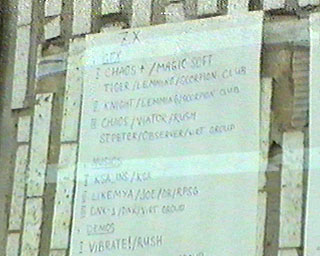 ZX
GFX
I CHAOS + / MAGIC SOFT
TIGER / LEMMING / SCORPION CLUB
II KNIGHT / LEMMING / SCORPION CLUB
III CHAOS / VIATOR / RUSH
ST.PETER / OBSERVER / VIRT GROUP
MUSICS
I KSA, INS / KSA
II LIKEMYA / JOE / DR / RPSG
III DNK-J / DARK / VIRT GROUP
DEMOS
I VIBRATE! / RUSH
GROUP